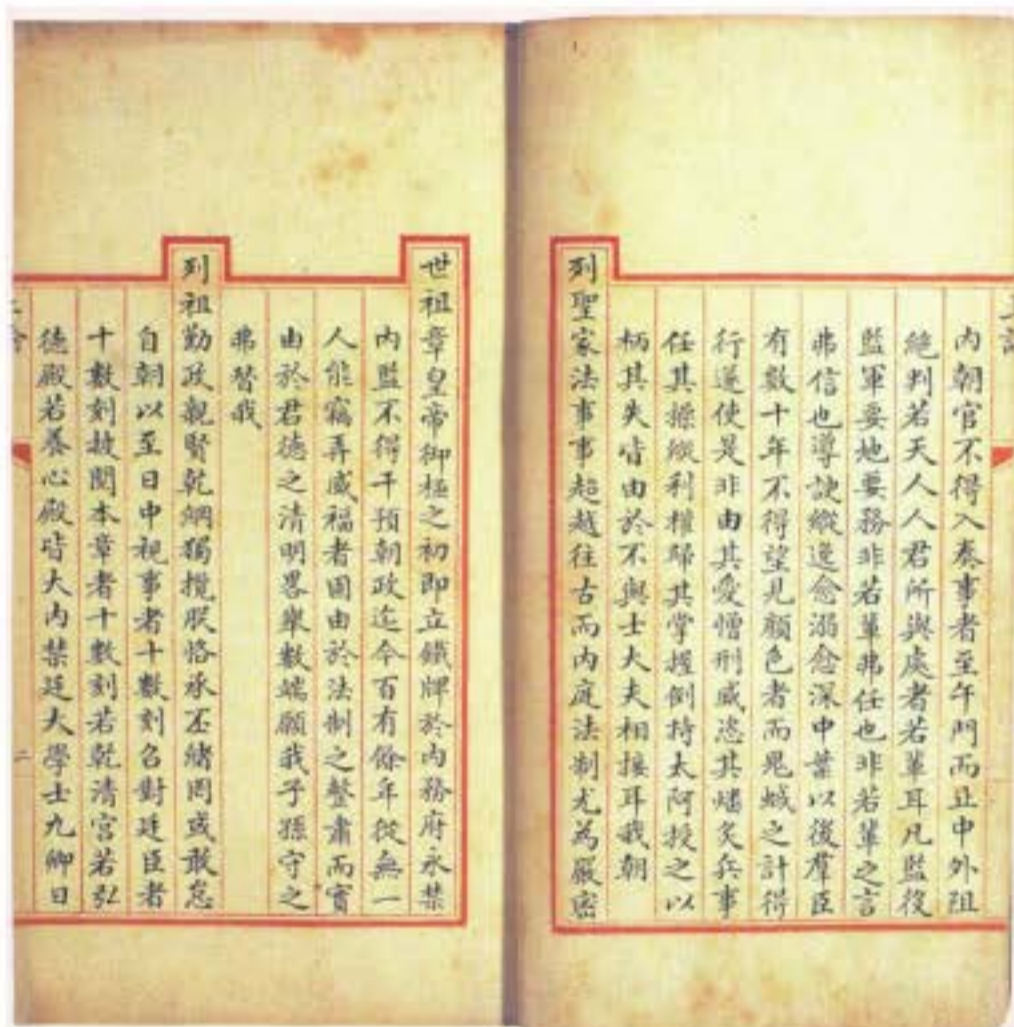 內朝官不得入奏事者至午門而止中外阻
絕判若天人人君所與處者若輩耳凡監後
監軍要地要務非若輩弗任也非若輩之言
弗信也導諛縱逸愈溺愈深中葉以後羣臣
有數十年不得望見顏色者而鬼蜮之計得
行遂使是非由其愛憎刑威恣其燔炙兵事
任其操縱利權歸其掌握倒持太阿授之以
柄其失皆由於不與士大夫相接耳我朝
列聖家法事事超越往古而內庭法制尤為嚴密
世祖章皇帝御極之初即立鐵牌於內務府永禁
內監不得干預朝政迄今百有餘年從無一
人能竊弄威福者固由於法制之整肅而實
由於君德之清明畧舉數端願我子孫守之
弗替我
列祖勤政親賢乾綱獨攬朕恪承丕緒罔或敢怠
自朝以至日中視事者十數刻召對廷臣者
十數刻披閱本章者十數刻若乾清宮若弘
德殿若養心殿皆大內禁廷大學士九卿日
二